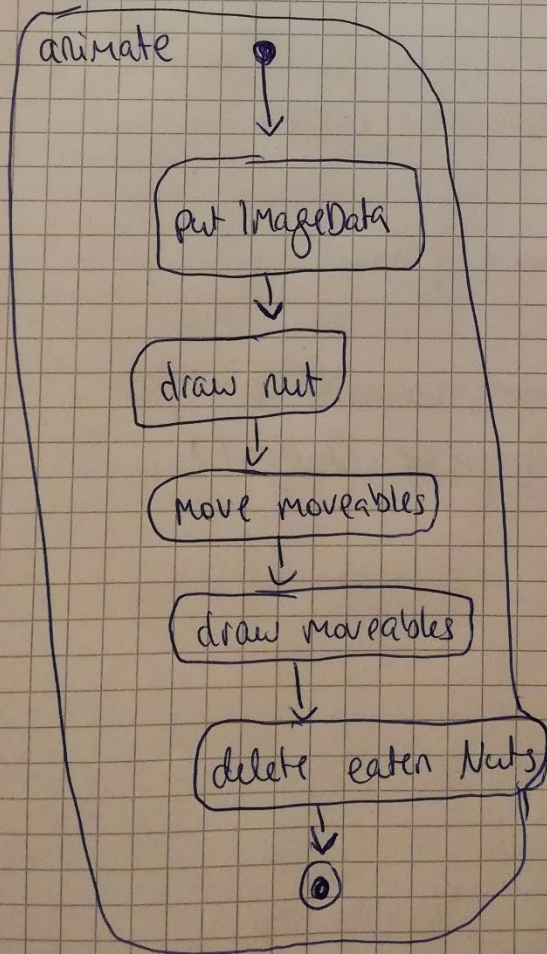 animate
put ImageData
draw nut
move moveables
draw moveables
delete eaten Nuts